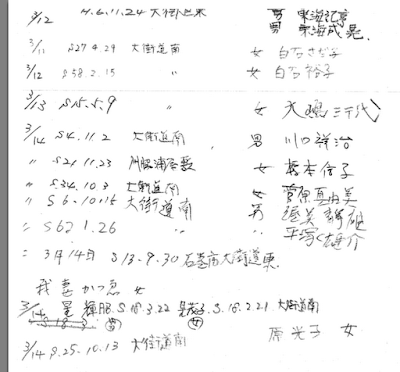 3/12 H.6.11.24 大街道東 男 東海記亨
男 東海成晃.
3/11 S27.4.29 大街道南 女 白石さだ子
3/12 S58.2.15 〃 女 白石裕子
3/13 S15.5.9 〃 女 大嶋三千代
3/14 S4.11.2 大街道南 男 川口祥治
〃 S21.11.23 女 橋本信子
〃 S34.10.3 大街道南 女 菅原真由美
〃 S6.10.15 大街道南 男 渥美
〃 S62 1.26 〃 〃 平塚雄介
〃 3月14日 S13.9.30 石巻市大街道東
我妻かつ恵 女
3/14 星 輝昭 S.18.3.22 S.18.2.21 大街道南
男 女 原光子 女
3/14 S.25.10.13 大街道南